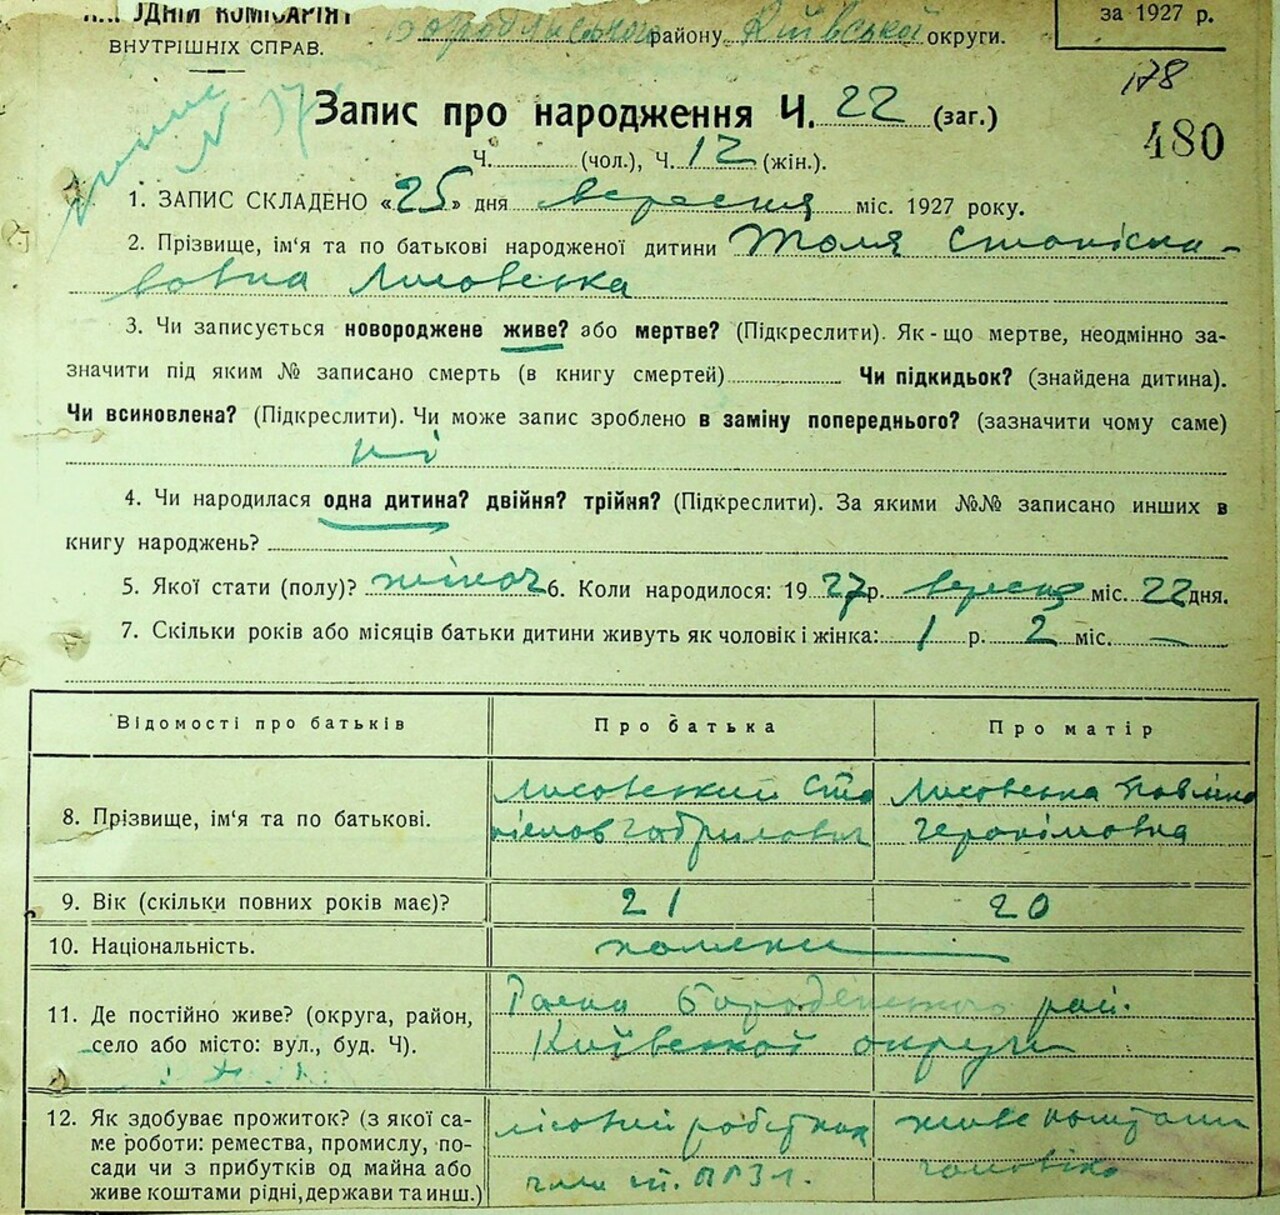 ВНУТРІШНІХ СПРАВ.
району, Київської округи.
за 1927 р.
178
480
Запис про народження Ч. 22 (заг.)
Ч. (чол.), Ч. 12 (жін.).
1. ЗАПИС СКЛАДЕНО «25» дня вересня міс. 1927 року.
2. Прізвище, ім'я та по батькові народженої дитини Станісла-
вовна Лисовська
3. Чи записується новороджене живе? або мертве? (Підкреслити). Як-що мертве, неодмінно за-
значити під яким № записано смерть (в книгу смертей) Чи підкидьок? (знайдена дитина).
Чи всиновлена? (Підкреслити). Чи може запис зроблено в заміну попереднього? (зазначити чому саме)
ні
4. Чи народилася одна дитина? двійня? трійня? (Підкреслити). За якими №№ записано инших в
книгу народжень?
5. Якої стати (полу)? жіноч 6. Коли народилося: 1927р. вересня міс. 22 дня.
7. Скільки років або місяців батьки дитини живуть як чоловік і жінка: 1 р. 2 міс. —
Відомості про батьків Про батька Про матір
8. Прізвище, ім'я та по батькові.
Лисовський Ста
нислав Габрилович
Лисовська Павліна
Геронімовна
9. Вік (скільки повних років має)? 21 20
10. Національність. поляки
11. Де постійно живе? (округа, район,
село або місто: вул., буд. Ч).
рай.
Київської округи
12. Як здобуває прожиток? (з якої са-
ме роботи: ремества, промислу, по-
сади чи з прибутків од майна або
живе коштами рідні, держави та инш.)
лісовий робітник
живе коштами
чоловіка